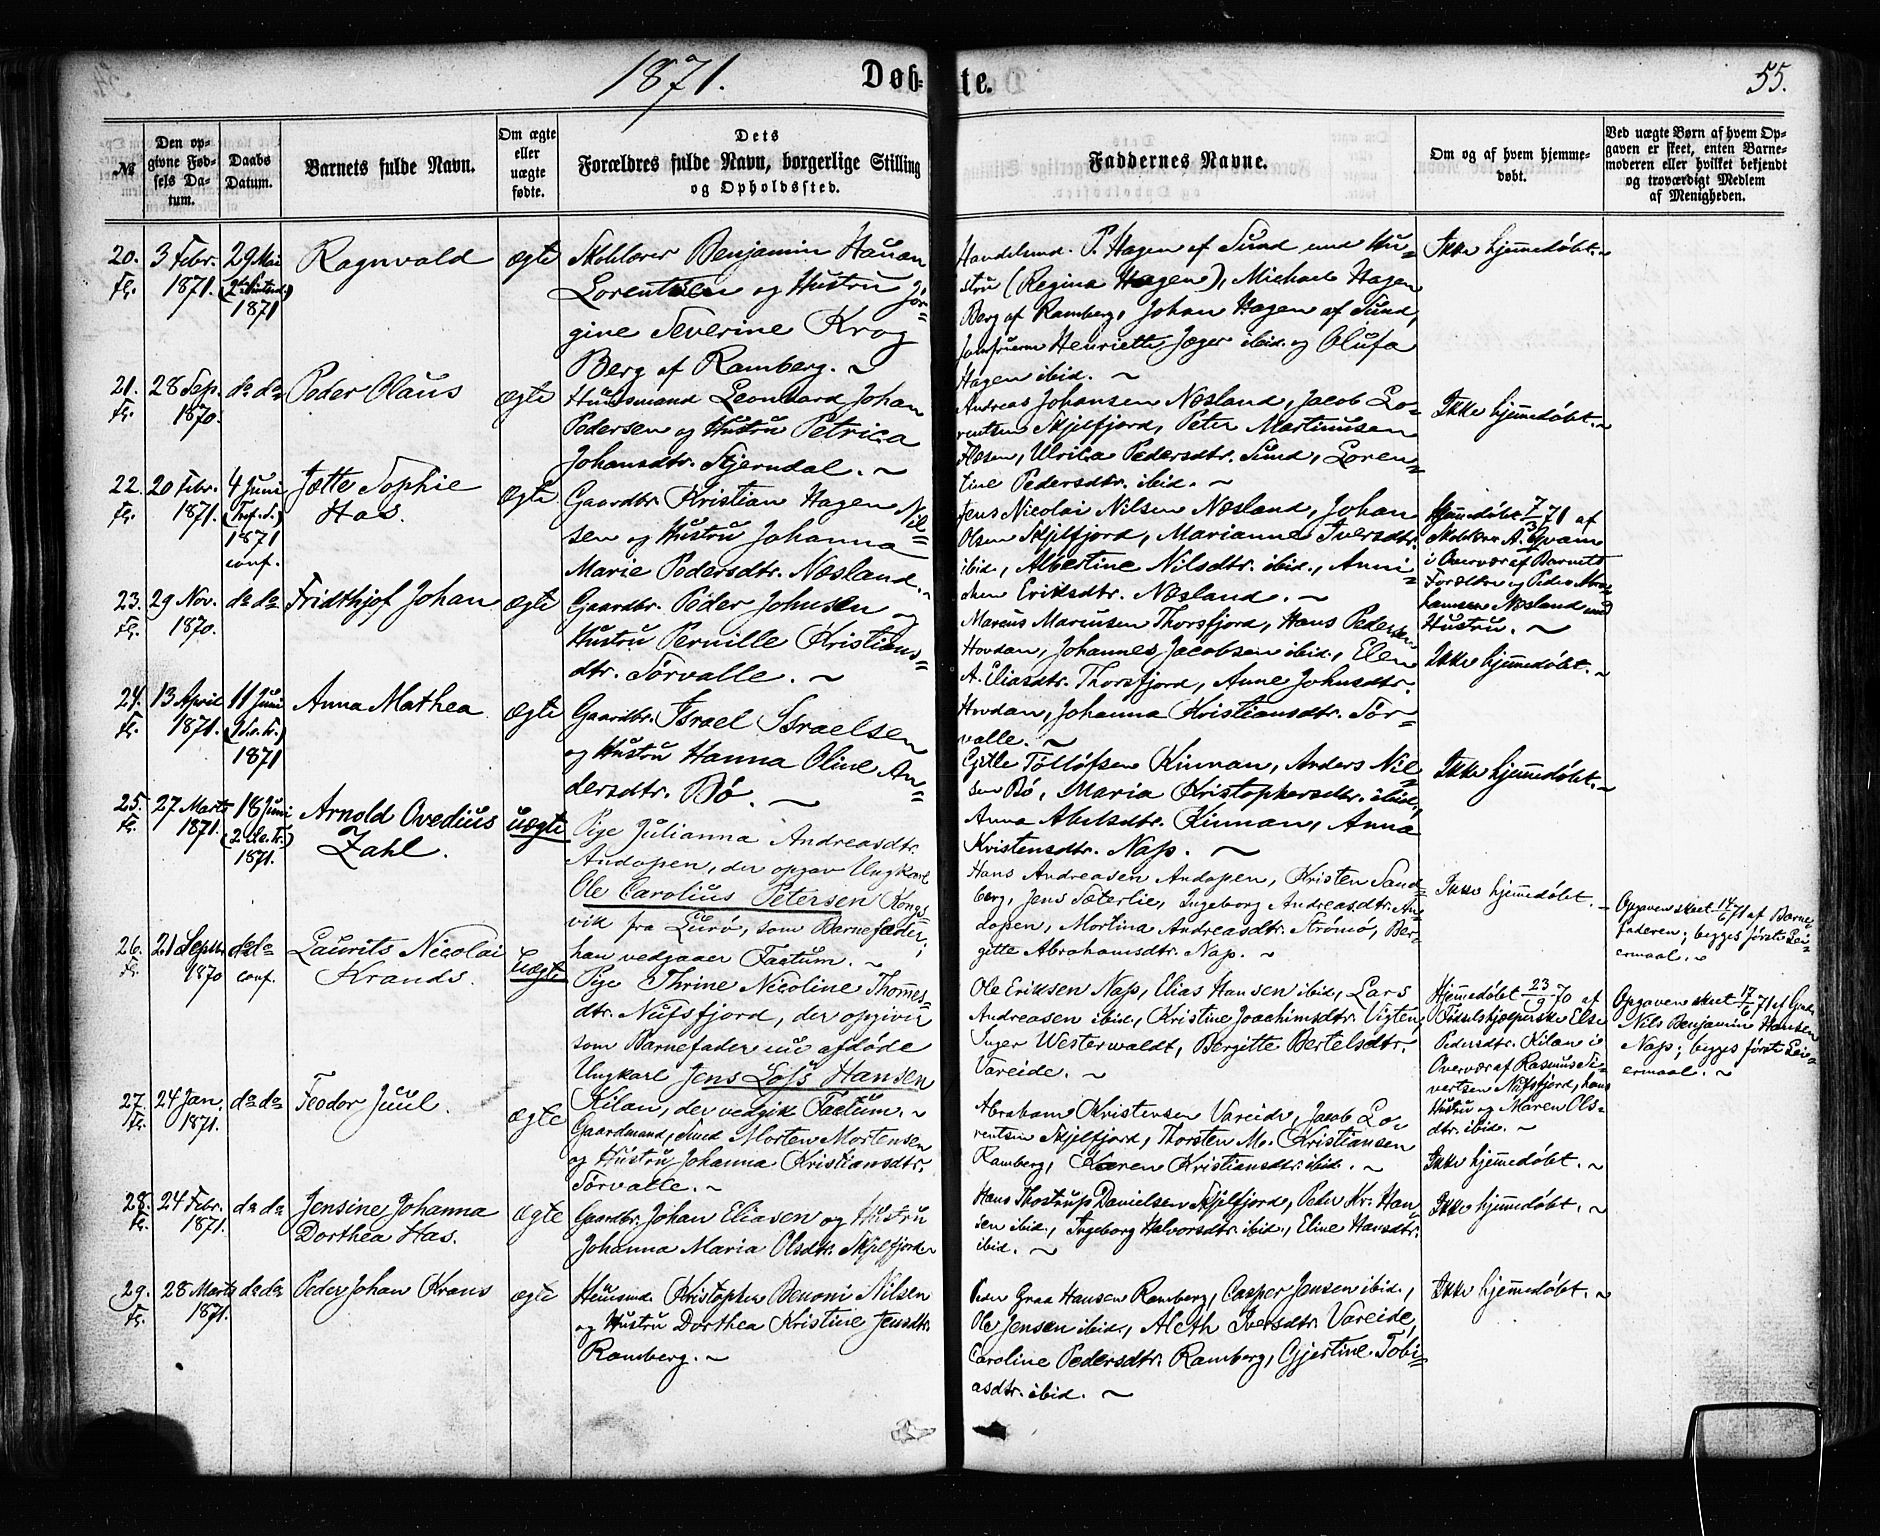 1871.
Døbte.
55.
№
Den opgivne Fødsels Datum.
Daabs Datum.
Barnets fulde Navn.
Om ægte eller uægte fødte.
Dets Forældres fulde Navn, borgerlige Stilling og Opholdssted.
Faddernes Navne.
Om og af hvem hjemmedøbt.
Ved uægte Børn af hvem Opgaven er skeet, enten Barnemoderen eller hvilket bekjendt og troværdigt Medlem af Menigheden.
20.
Fl.
3 Febr.
1871.
29 Mai
1871
Ragnvald
ægte
Skolelærer Benjamin Hauan
Lorentsen og Hustru Jör=
gine Severine Krog
Berg af Ramberg. ~
Handelsmd. P. Hagen af Sund med Hu=
stru (Regina Hagen), Michael Hagen
Berg af Ramberg, Johan Hagen af Sund,
Jomfruerne Henriette Jæger ibid. og Olufa
Hagen ibid. ~
Ikke hjemmedøbt. ~
21.
Fl.
28 Sep.
1870.
do do
Peder Olaus
ægte
Huusmand Leonhard Johan
Pedersen og Hustru Petrica
Johansdtr. Stjerndal. ~
Andreas Johansen Næsland, Jacob Lo=
rentsen Skjelfjord, Peter Martinusen
Flæsen, Ulrica Pedersdtr. Sund, Loren=
tine Pedersdtr. ibid. ~
Ikke hjemmedøbt. ~
22.
Fl.
20 Febr.
1871.
4 Juni
(Tref. S.)
1871
conf.
Jætte Sophie
Has.
ægte
Gaardbr. Kristian Hagen Nil=
sen og Hustru Johanna
Marie Pedersdtr. Næsland. ~
Jens Nicolai Nilsen Næsland, Johan
Olsen Skjelfjord, Marianne Iversdtr.
ibid., Albertine Nilsdtr. ibid., Anni=
chen Eriksdtr. Næsland. ~
Hjemmedøbt 7/3 71 af
Skolelærer A. Kvam
i Overvær af Barnets
Forældre og Peder Abra=
hamsen Næsland med
Hustru. ~
23.
Fl.
29 Nov.
1870.
do do
Fridthjof Johan
ægte
Gaardbr. Peder Johnsen og
Hustru Pernille Kristians=
dtr. Sörvalle. ~
Marcus Marcusen Thorsfjord, Hans Pedersen
Hovdan, Johannes Jacobsen ibid., Elen
A. Eliasdtr. Thorsfjord, Anne Johnsdtr.
Hovdan, Johanna Kristiansdtr. Sör=
valle. ~
Ikke hjemmedøbt. ~
24.
Fl.
13 April
1871.
11 Juni
(1 S. e. Tr.)
1871
Anna Mathea
ægte
Gaardbr. Israel Israelsen
og Hustru Hanna Oline An=
dersdtr. Bö. ~
Tollöfsen Kinnan, Anders Nil=
sen Bö, Maria Kristophersdtr. ibid.,
Anna Abelsdtr. Kinnan, Anna
Kristensdtr. Nap. ~
Ikke hjemmedøbt. ~
25.
Fl.
27 Marts
1871.
18 Juni
(2 S. e. Tr.)
1871.
Arnold Ovedius
Zahl.
uægte
Pige Julianna Andreasdtr.
Andopen, der opgav Ungkarl
Ole Carolius Petersen Kongs=
vik fra Lurö, som Barnefader;
han vedgaaer Factum. ~
Hans Andreasen Andopen, Kristen Sand=
berg, Jens Sæterlie, Ingeborg Andreasdtr. An=
dopen, Martina Andreasdtr. Strömö, Ber=
gitte Abrahamsdtr. Nap. ~
Ikke hjemmedøbt. ~
Opgaven skeet 14/6 71 af Barne=
faderen; begges første Lei=
ermaal. ~
26.
Fl.
21 Septbr.
1870
do do
conf.
Laurits Nicolai
Krands.
Uægte
Pige Thrine Nicoline Thomes=
dtr. Nufsfjord, der opgiver
som Barnefader nu afdøde
Ungkarl Jens Lofs Hansen
Kilan, der vedgik Factum. ~
Ole Eriksen Nap, Elias Hansen ibid., Lars
Andreasen ibid., Kristine Joachimsdtr. Vigten,
Inger Westerwaldt, Bergitte Bertelsdtr.
Vareide. ~
Hjemmedøbt 23/9 70 af
Fødselshjælperske Else
Pedersdtr. Kilan i
Overvær af Rasmus Si=
vertsen Nufsfjord, hans
Hustru og Maren Ols=
dtr. ibid. ~
Opgaven skeet 17/6 71 af
Nils Benjamin Hansen
Nap; begges første Lei=
ermaal. ~
27.
Fl.
24 Jan.
1871.
do do
Teodor Juul.
ægte
Gaardmand, Smed Morten Mortensen
og Hustru Johanna Kristiansdtr.
Sörvalle. ~
Abraham Kristensen Vareide, Jacob Lo=
rentsen Skjelfjord, Thorsten M. Kristiansen
Ramberg, Karen Kristiansdtr. ibid. ~
Ikke hjemmedøbt. ~
28.
Fl.
24 Febr.
1871.
do do
Jensine Johanna
Dorthea Has.
ægte
Gaardbr. Johan Eliasen og Hustru
Johanna Maria Olsdtr. Skjelfjord.
Hans Thostrup Danielsen Skjelfjord, Peder Kr. Han=
sen ibid., Ingeborg Halvorsdtr. ibid., Eline Hansdtr.
ibid. ~
Ikke hjemmedøbt. ~
29.
Fl.
28 Marts
1871.
do do
Peder Johan Krans
ægte
Huusmd. Kristopher Benoni Nilsen
og Hustru Dorthea Kristine Jensdtr.
Ramberg. ~
Peder Graa Hansen Ramberg, Casper Jensen ibid.,
Ole Jensen ibid., Aleth Iversdtr. Vareide,
Caroline Pedersdtr. Ramberg, Gjertine Tobi=
asdtr. ibid. ~
Ikke hjemmedøbt. ~